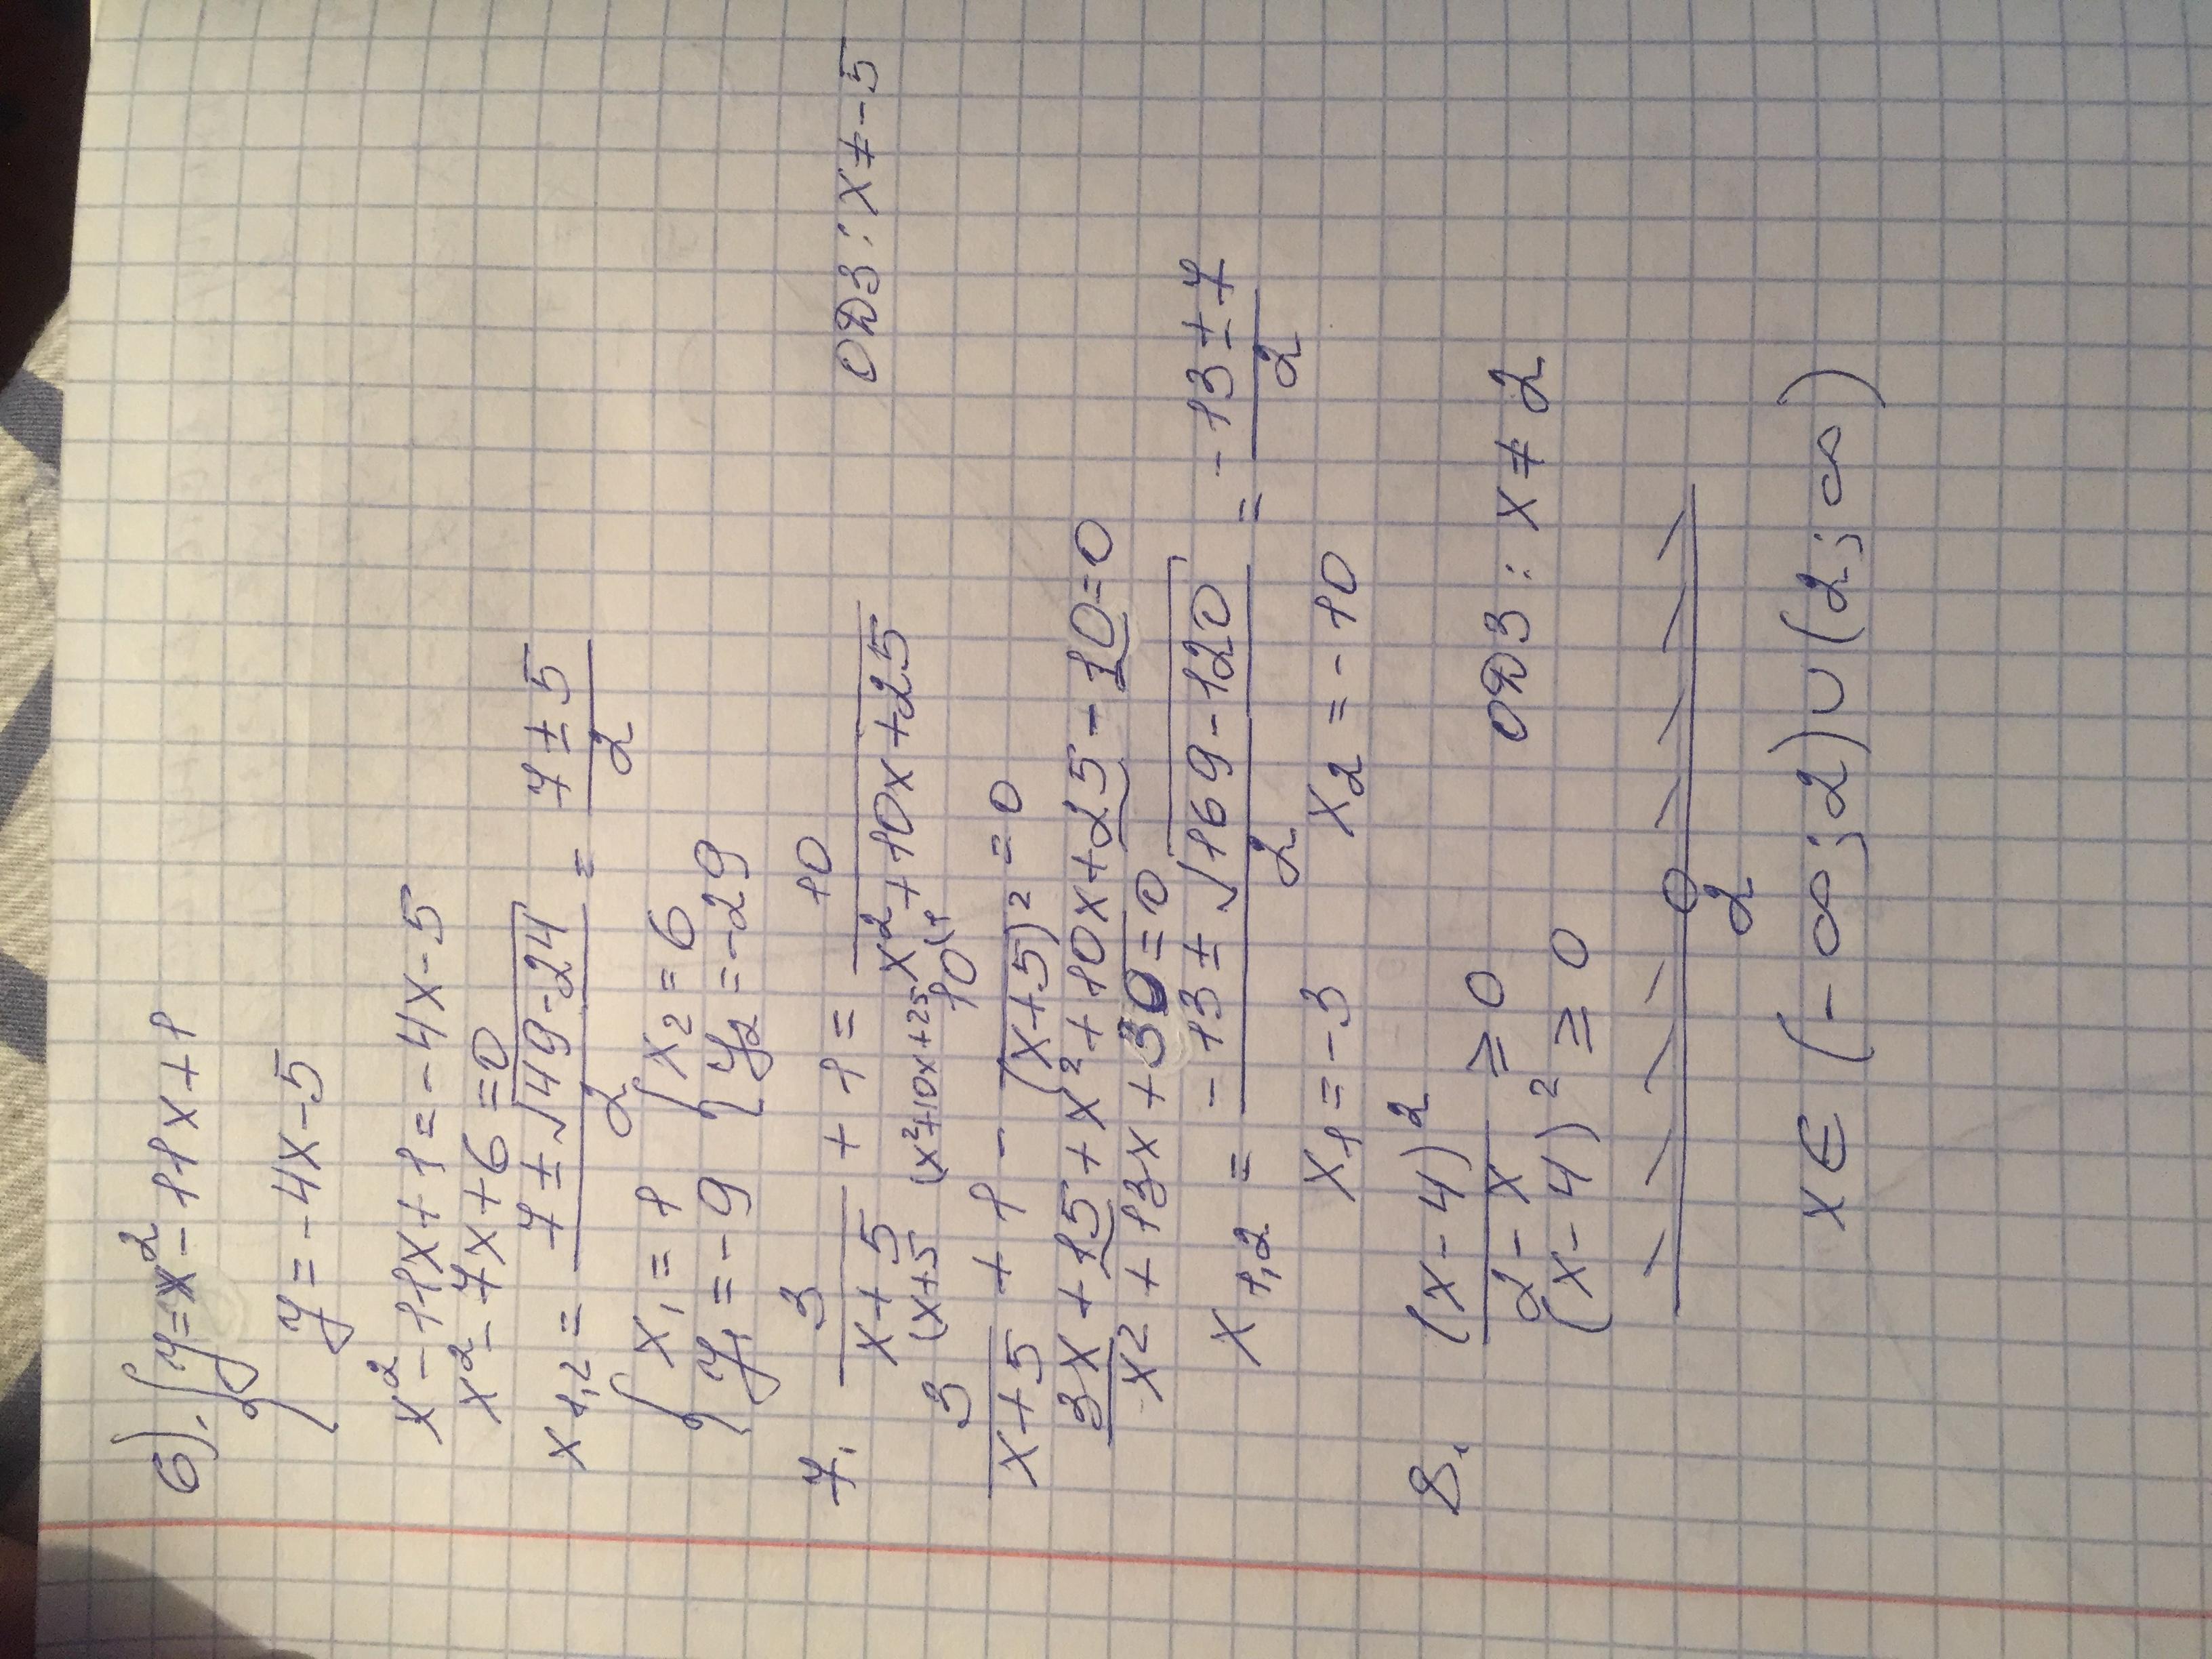 6). { y = x² - 11x + 1
y = -4x - 5
x² - 11x + 1 = -4x - 5
x² - 7x + 6 = 0
x₁,₂ = (7 ± √(49 - 24))/2 = (7 ± 5)/2
{ x₁ = 1 { x₂ = 6
y₁ = -9 y₂ = -29
7. 3/(x + 5) + 1 = 10/(x² + 10x + 25) ОДЗ: x ≠ -5
(x+5 (x²+10x+25 10(1
3/(x + 5) + 1 - 10/(x + 5)² = 0
3x + 15 + x² + 10x + 25 - 10 = 0
x² + 13x + 30 = 0
x₁,₂ = (-13 ± √(169 - 120))/2 = (-13 ± 7)/2
x₁ = -3 x₂ = -10
8. (x - 4)²/(2 - x) ≥ 0 ОДЗ: x ≠ 2
(x - 4)² ≥ 0
2
x ∈ (-∞; 2) ∪ (2; ∞)